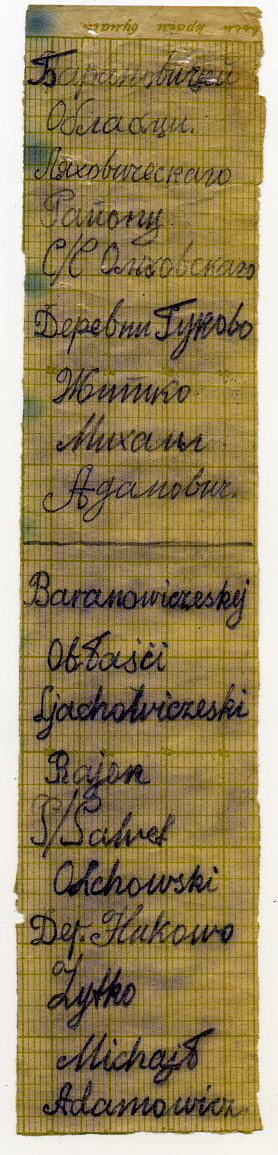 Барановичкой
Обласци.
Ляховическаго
Району
С/С Ольховскаго
Деревни Гуково
Житко
Михаил
Адамович.
Baranowiczeskėj
Obłaśći
Ljachowiczeski
Rajon
S/Sawet
Olchowski
Der. Hukowo
Żytko
Michaił
Adamowicz.